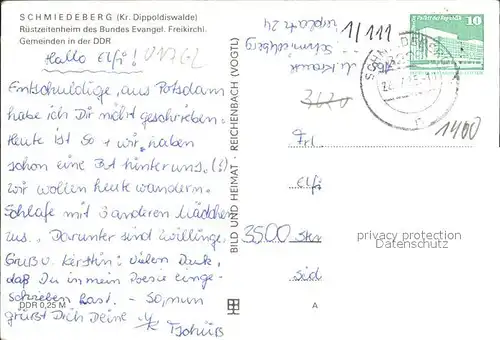 SCHMIEDEBERG (Kr. Dippoldiswalde)
Rüstzeitenheim des Bundes Evangel. Freikirchl.
Gemeinden in der DDR
Hallo Elfi!
Entschuldige, aus Potsdam
habe ich Dir nicht geschrieben.
Heute ist So + wir haben
schon eine BA hinter uns. (!)
Wir wollen heute wandern.
Schlafe mit 3 anderen Mädchen
zus. Darunter sind Zwillinge.
Gruß v. Kerstin: Vielen Dank,
daß Du in mein Poesie einge-
schrieben hast. - So, nun
grüßt Dich Deine
Tschüß
DDR 0,25 M
BILD UND HEIMAT · REICHENBACH (VOGTL)
1/111
Schmiedeberg
10
SCHMIEDEBERG
1400
Frl.
Elfi
3500
Süd
privacy protection
Datenschutz
A